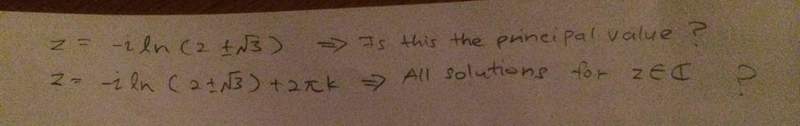 z = -i ln (2 ±√3) ⇒ Is this the principal value ?
z = -i ln (2±√3) + 2πk ⇒ All solutions for z∈ℂ ?